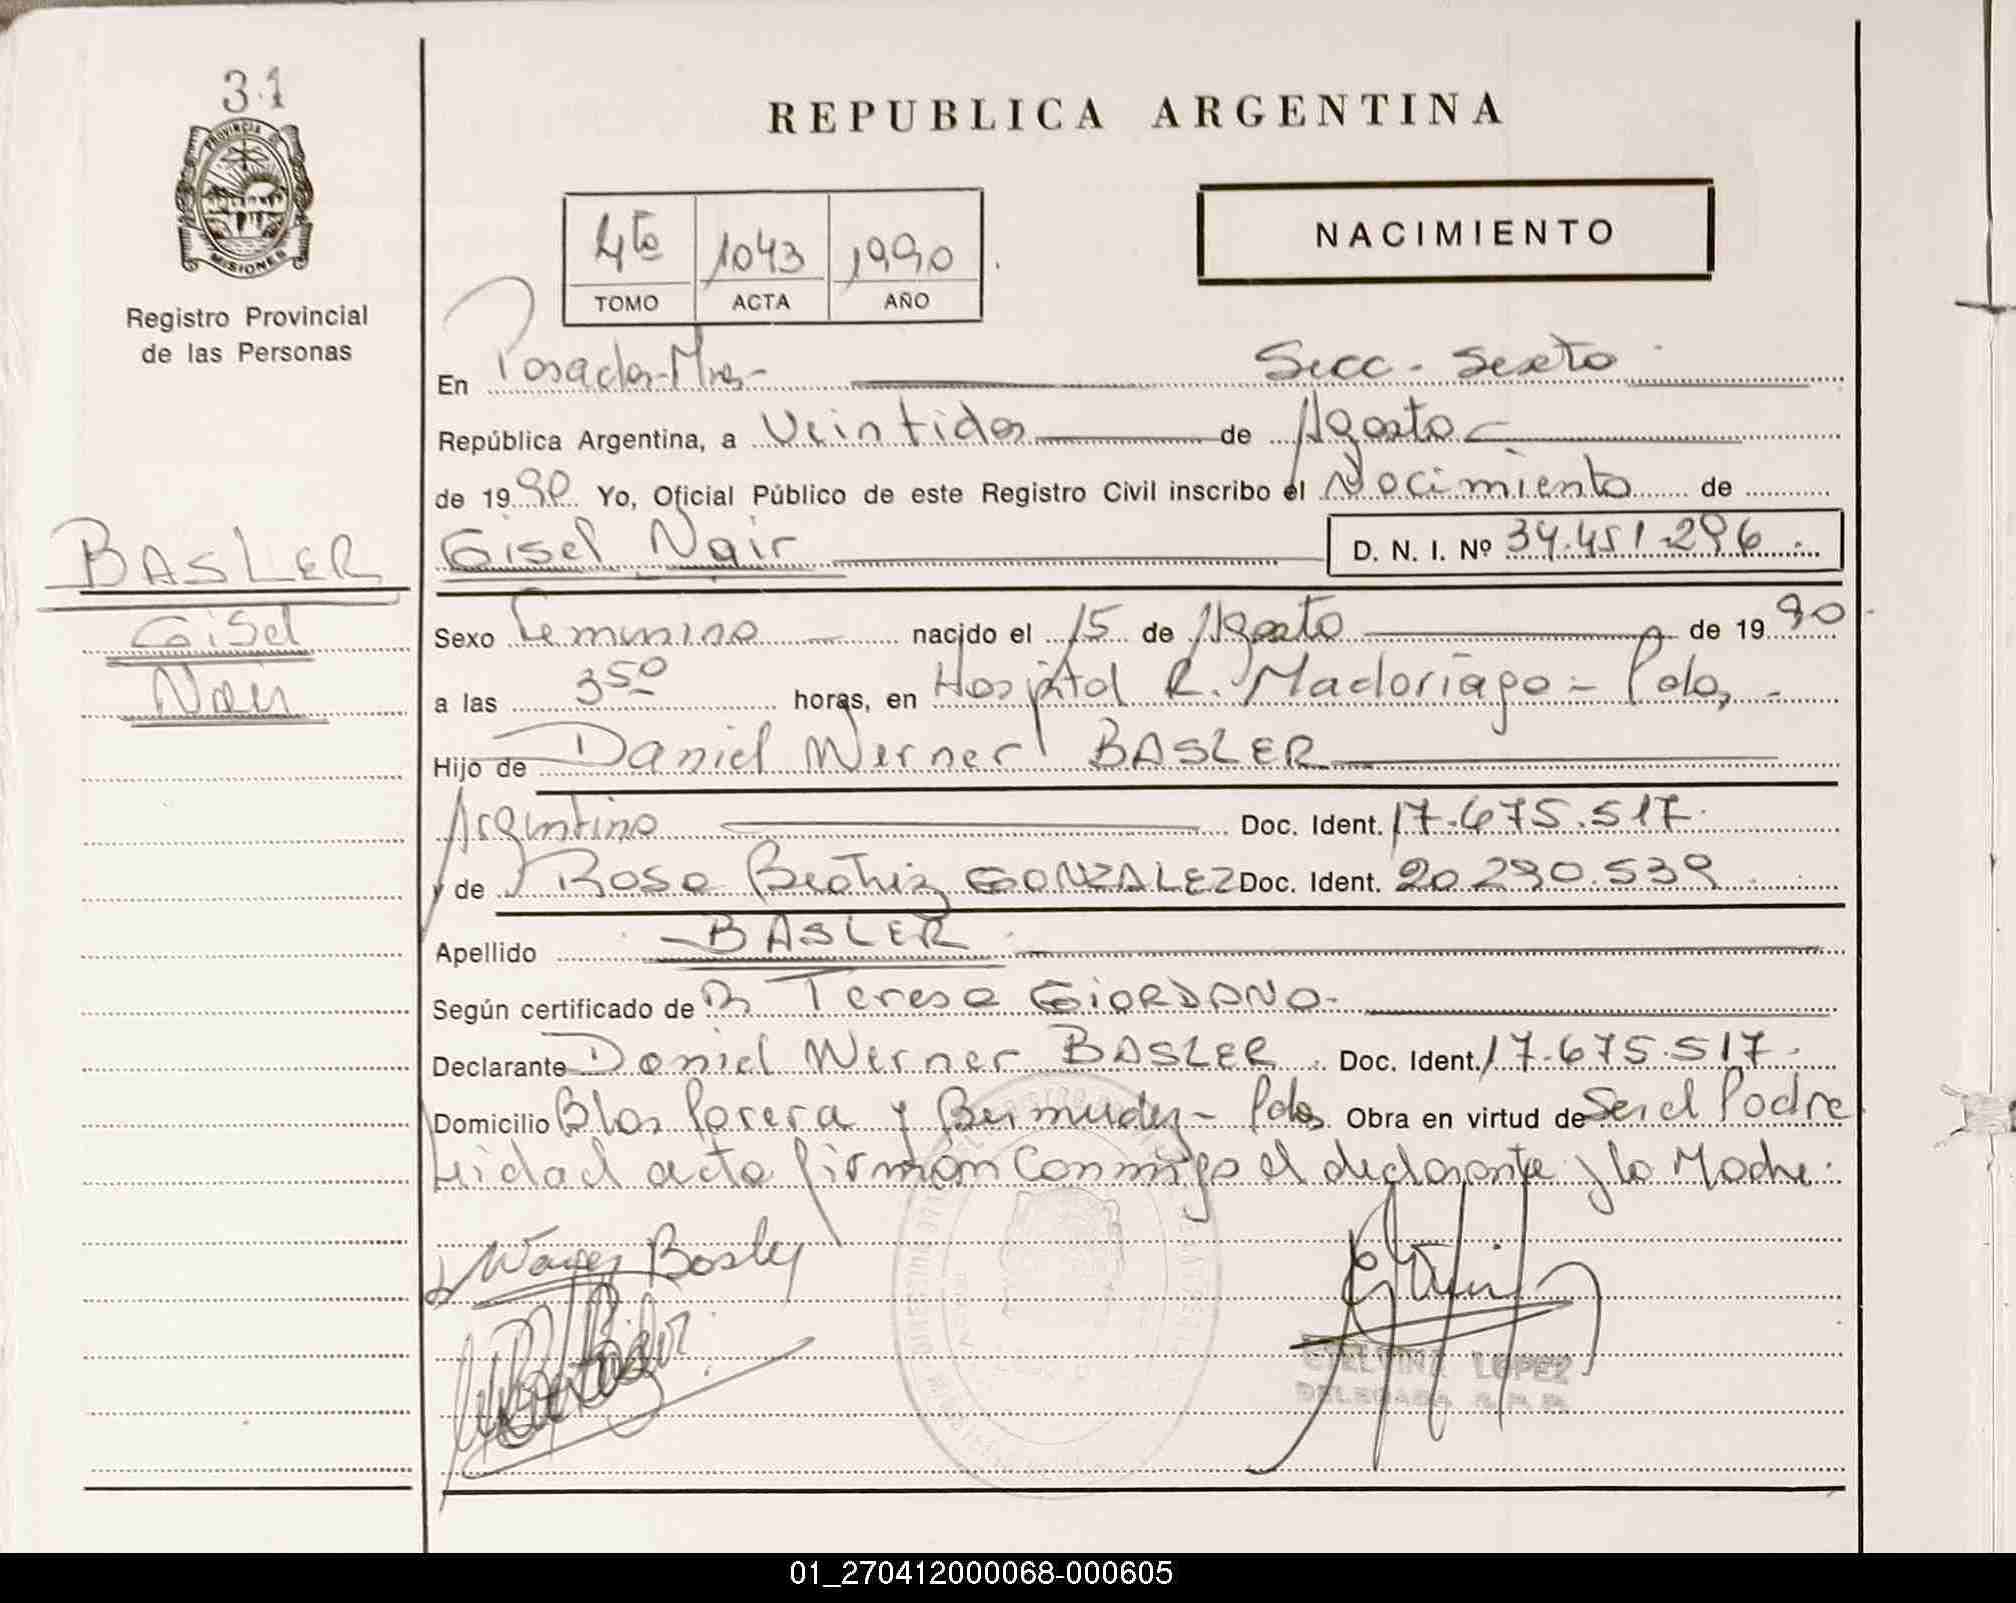 31
PROVINCIA
MISIONES
Registro Provincial
de las Personas
REPUBLICA ARGENTINA
NACIMIENTO
4to 1043 1990
TOMO ACTA AÑO
En Posadas-Mnes- Secc. Sexto
República Argentina, a Veintidos de Agosto
de 1990 Yo, Oficial Público de este Registro Civil inscribo el Nacimiento de
Gisel Nair D. N. I. Nº 34.451.296
BASLER
Gisel
Nair
Sexo Femenino nacido el 15 de Agosto de 1990
a las 3 50 horas, en Hospital R. Madariaga - Pdas,-
Hijo de Daniel Werner BASLER
Argentino Doc. Ident. 17.675.517
y de Rosa Beatriz GONZALEZ Doc. Ident. 20.290.539
Apellido BASLER
Según certificado de Teresa GIORDANO-
Declarante Daniel Werner BASLER Doc. Ident. 17.675.517.
Domicilio Blas Parera y Bermudez- Pdas Obra en virtud de Ser el Padre
Leida el acta firman conmigo el declarante y la Madre.
Basler
LOPEZ
DELEGADA
01_270412000068-000605